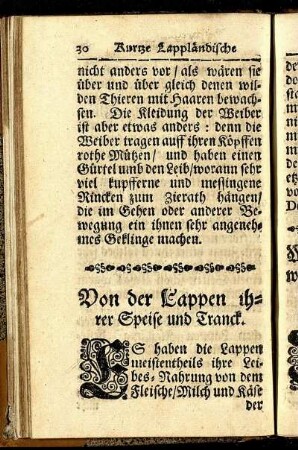 30 Kurtze Lappländische
nicht anders vor/ als wären sie
über und über gleich denen wil-
den Thieren mit Haaren bewach-
sen. Die Kleidung der Weiber
ist aber etwas anders: denn die
Weiber tragen auff ihren Köpffen
rothe Mützen/ und haben einen
Gürtel umb den Leib/ woran sehr
viel kupfferne und meßingene
Rincken zum Zierath hängen/
die im Gehen oder anderer Be-
wegung ein ihnen sehr angeneh-
mes Geklinge machen.
Von der Lappen ih-
rer Speise und Tranck.
ES haben die Lappen
meistentheils ihre Lei-
bes-Nahrung von dem
Fleische/ Milch und Käse
der